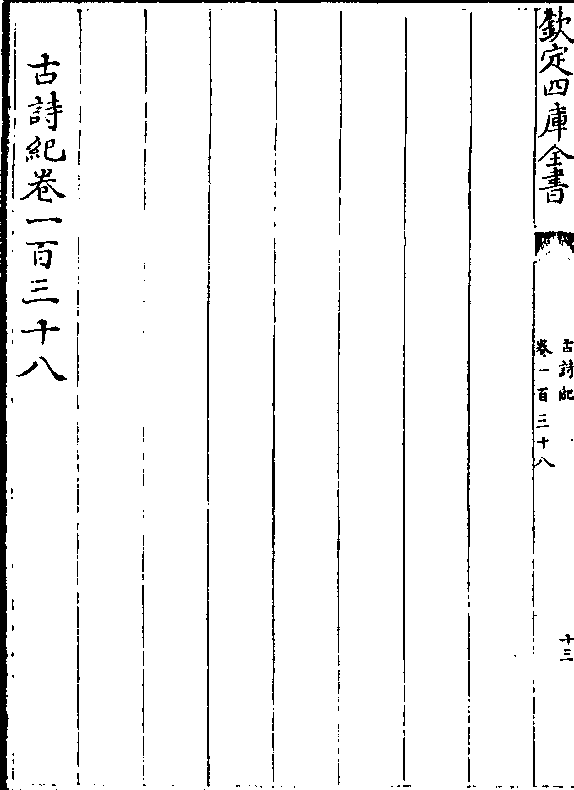 欽定四庫全書
古詩紀
卷一百三十八
十三
古詩紀卷一百三十八